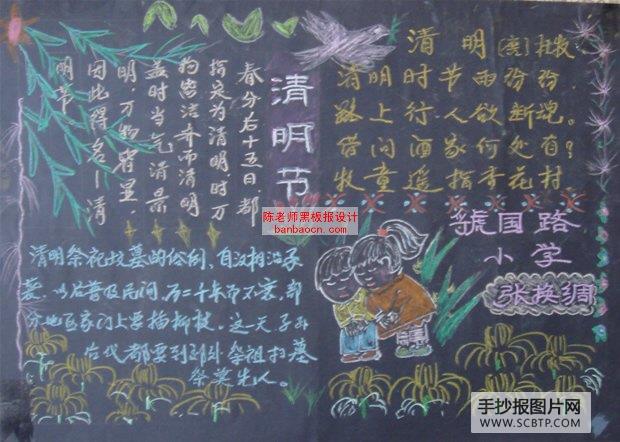 清明节
春分后十五日，都
指定为清明，时万
物洁齐而清明
盖时当气清景
明，万物皆显，
因此得名—清
明节
清明 [唐] 杜牧
清明时节雨纷纷，
路上行人欲断魂。
借问酒家何处有？
牧童遥指杏花村
陈老师黑板报设计
banbaocn.com
清明祭祀坟墓的俗例，自汉相沿承
袭，以后普及民间，历二千年而不衰，部
分地区家门上要插柳枝。这一天子孙
后代都要到郊外祭祖扫墓
祭奠先人。
虢国路
小学
张换绸
手抄报图片网
WWW.SCBTP.COM